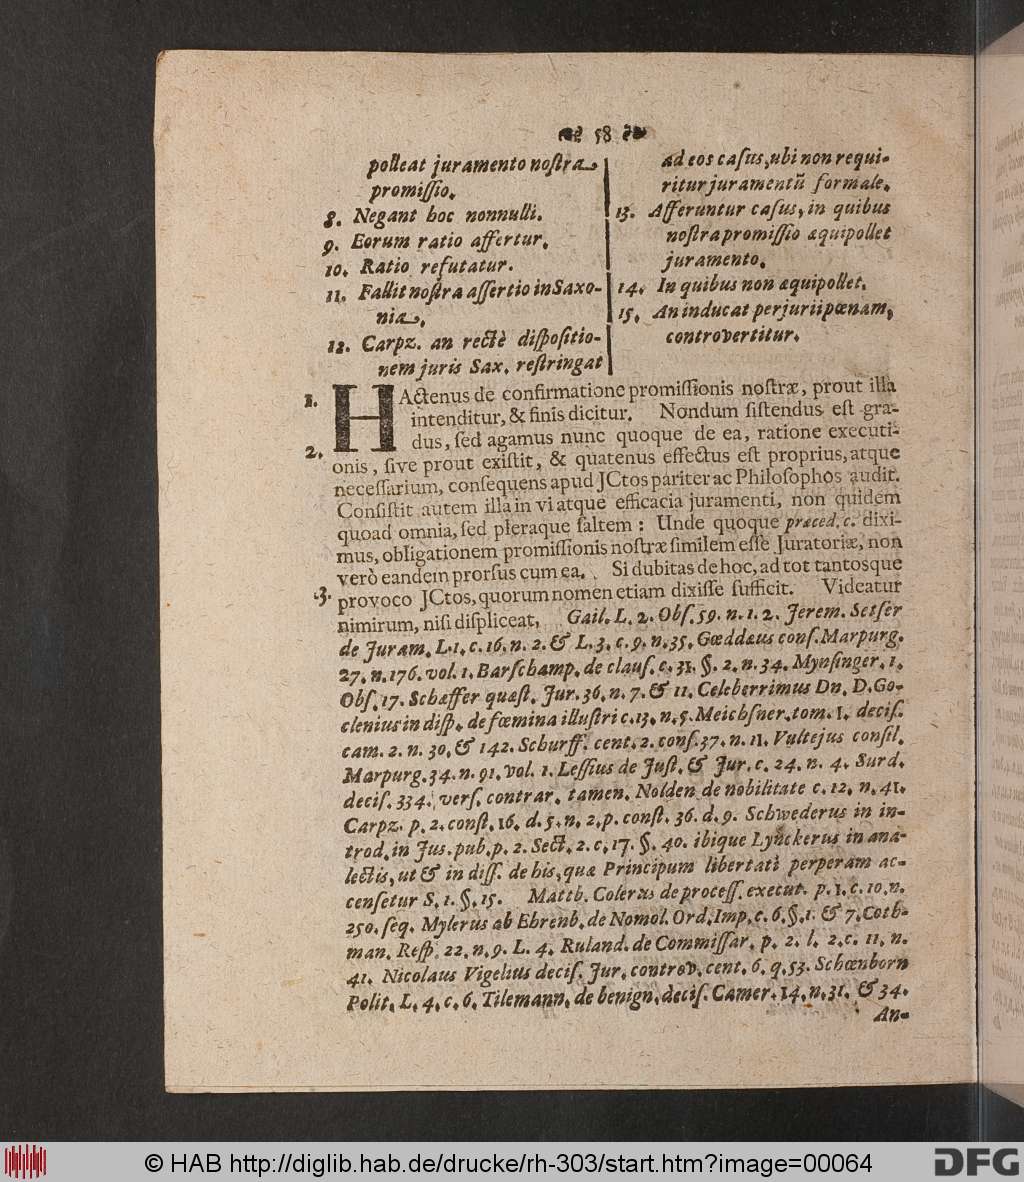 58
polleat juramento nostra
promissio.
8. Negant hoc nonnulli.
9. Eorum ratio affertur.
10. Ratio refutatur.
11. Fallit nostra assertio in Saxo-
nia.
12. Carpz. an rectè dispositio-
nem juris Sax. restringat
ad eos casus, ubi non requi-
ritur juramentū formale.
13. Afferuntur casus, in quibus
nostra promissio æquipollet
juramento.
14. In quibus non æquipollet.
15. An inducat perjurii pœnam,
controvertitur.
1. HActenus de confirmatione promissionis nostræ, prout illa
intenditur, & finis dicitur. Nondum sistendus est gra-
dus, sed agamus nunc quoque de ea, ratione executi-
2. onis, sive prout existit, & quatenus effectus est proprius, atque
necessarium, consequens apud JCtos pariter ac Philosophos audit.
Consistit autem illa in vi atque efficacia juramenti, non quidem
quoad omnia, sed pleraque saltem: Unde quoque præced. c. dixi-
mus, obligationem promissionis nostræ similem esse Juratoriæ, non
verò eandem prorsus cum ea. Si dubitas de hoc, ad tot tantosque
3. provoco JCtos, quorum nomen etiam dixisse sufficit. Videatur
nimirum, nisi displiceat, Gail. L. 2. Obs. 59. n. 1. 2. Jerem. Setser
de Juram. L. 1. c. 16. n. 2. & L. 3. c. 9. n. 35. Gœddæus cons. Marpurg.
27. n. 176. vol. 1. Barschamp. de claus. c. 31. §. 2. n. 34. Mynsinger. 1.
Obs. 17. Schæffer quæst. Jur. 36. n. 7. & 11. Celeberrimus Dn. D. Go-
clenius in disp. de fœmina illustri c. 13. n. 5. Meichsner. tom. 1. decis.
cam. 2. n. 30. & 142. Schurff. cent. 2. cons. 37. n. 11. Vultejus consil.
Marpurg. 34. n. 91. vol. 1. Lessius de Just. & Jur. c. 24. n. 4. Surd.
decis. 334. vers. contrar. tamen. Nolden de nobilitate c. 12. n. 41.
Carpz. p. 2. const. 16. d. 5. n. 2. p. const. 36. d. 9. Schwederus in in-
trod. in Jus. pub. p. 2. Sect. 2. c. 17. §. 40. ibique Lynckerus in ana-
lectis, ut & in diss. de his, quæ Principum libertati perperam ac-
censetur S. 1. §. 15. Matth. Colerus de process. execut. p. 1. c. 10. n.
250. seq. Mylerus ab Ehrenb. de Nomol. Ord. Imp. c. 6. §. 1. & 7. Coth-
man. Resp. 22. n. 9. L. 4. Ruland. de Commissar. p. 2. l. 2. c. 11. n.
41. Nicolaus Vigelius decis. Jur. controv. cent. 6. q. 53. Schœnborn
Polit. L. 4. c. 6. Tilemann. de benign. decis. Camer. 14. n. 31. & 34.
An-
© HAB http://diglib.hab.de/drucke/rh-303/start.htm?image=00064
DFG